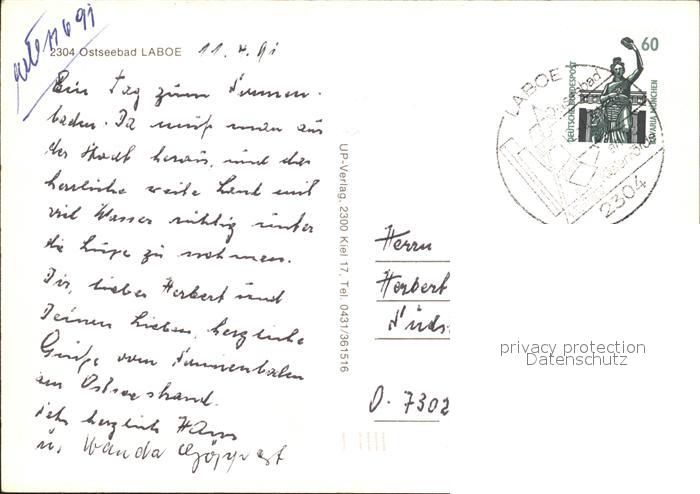 2304 Ostseebad LABOE 11.4.91
Ein Tag zum Sonnen-
baden. Da muß man aus
der Stadt heraus, und das
herrliche weite Land mit
viel Wasser richtig unter
die Lupe zu nehmen.
Dir, lieber Herbert und
Deinen Lieben, herzliche
Grüße vom Sonnenbaden
am Ostseestrand.
herzlich Hans
u. Wanda
UP-Verlag, 2300 Kiel 17, Tel. 0431/361516
60
DEUTSCHE BUNDESPOST
BAVARIA MÜNCHEN
LABOE
Ostseebad
2304
Herrn
Herbert
O. 7302
privacy protection
Datenschutz